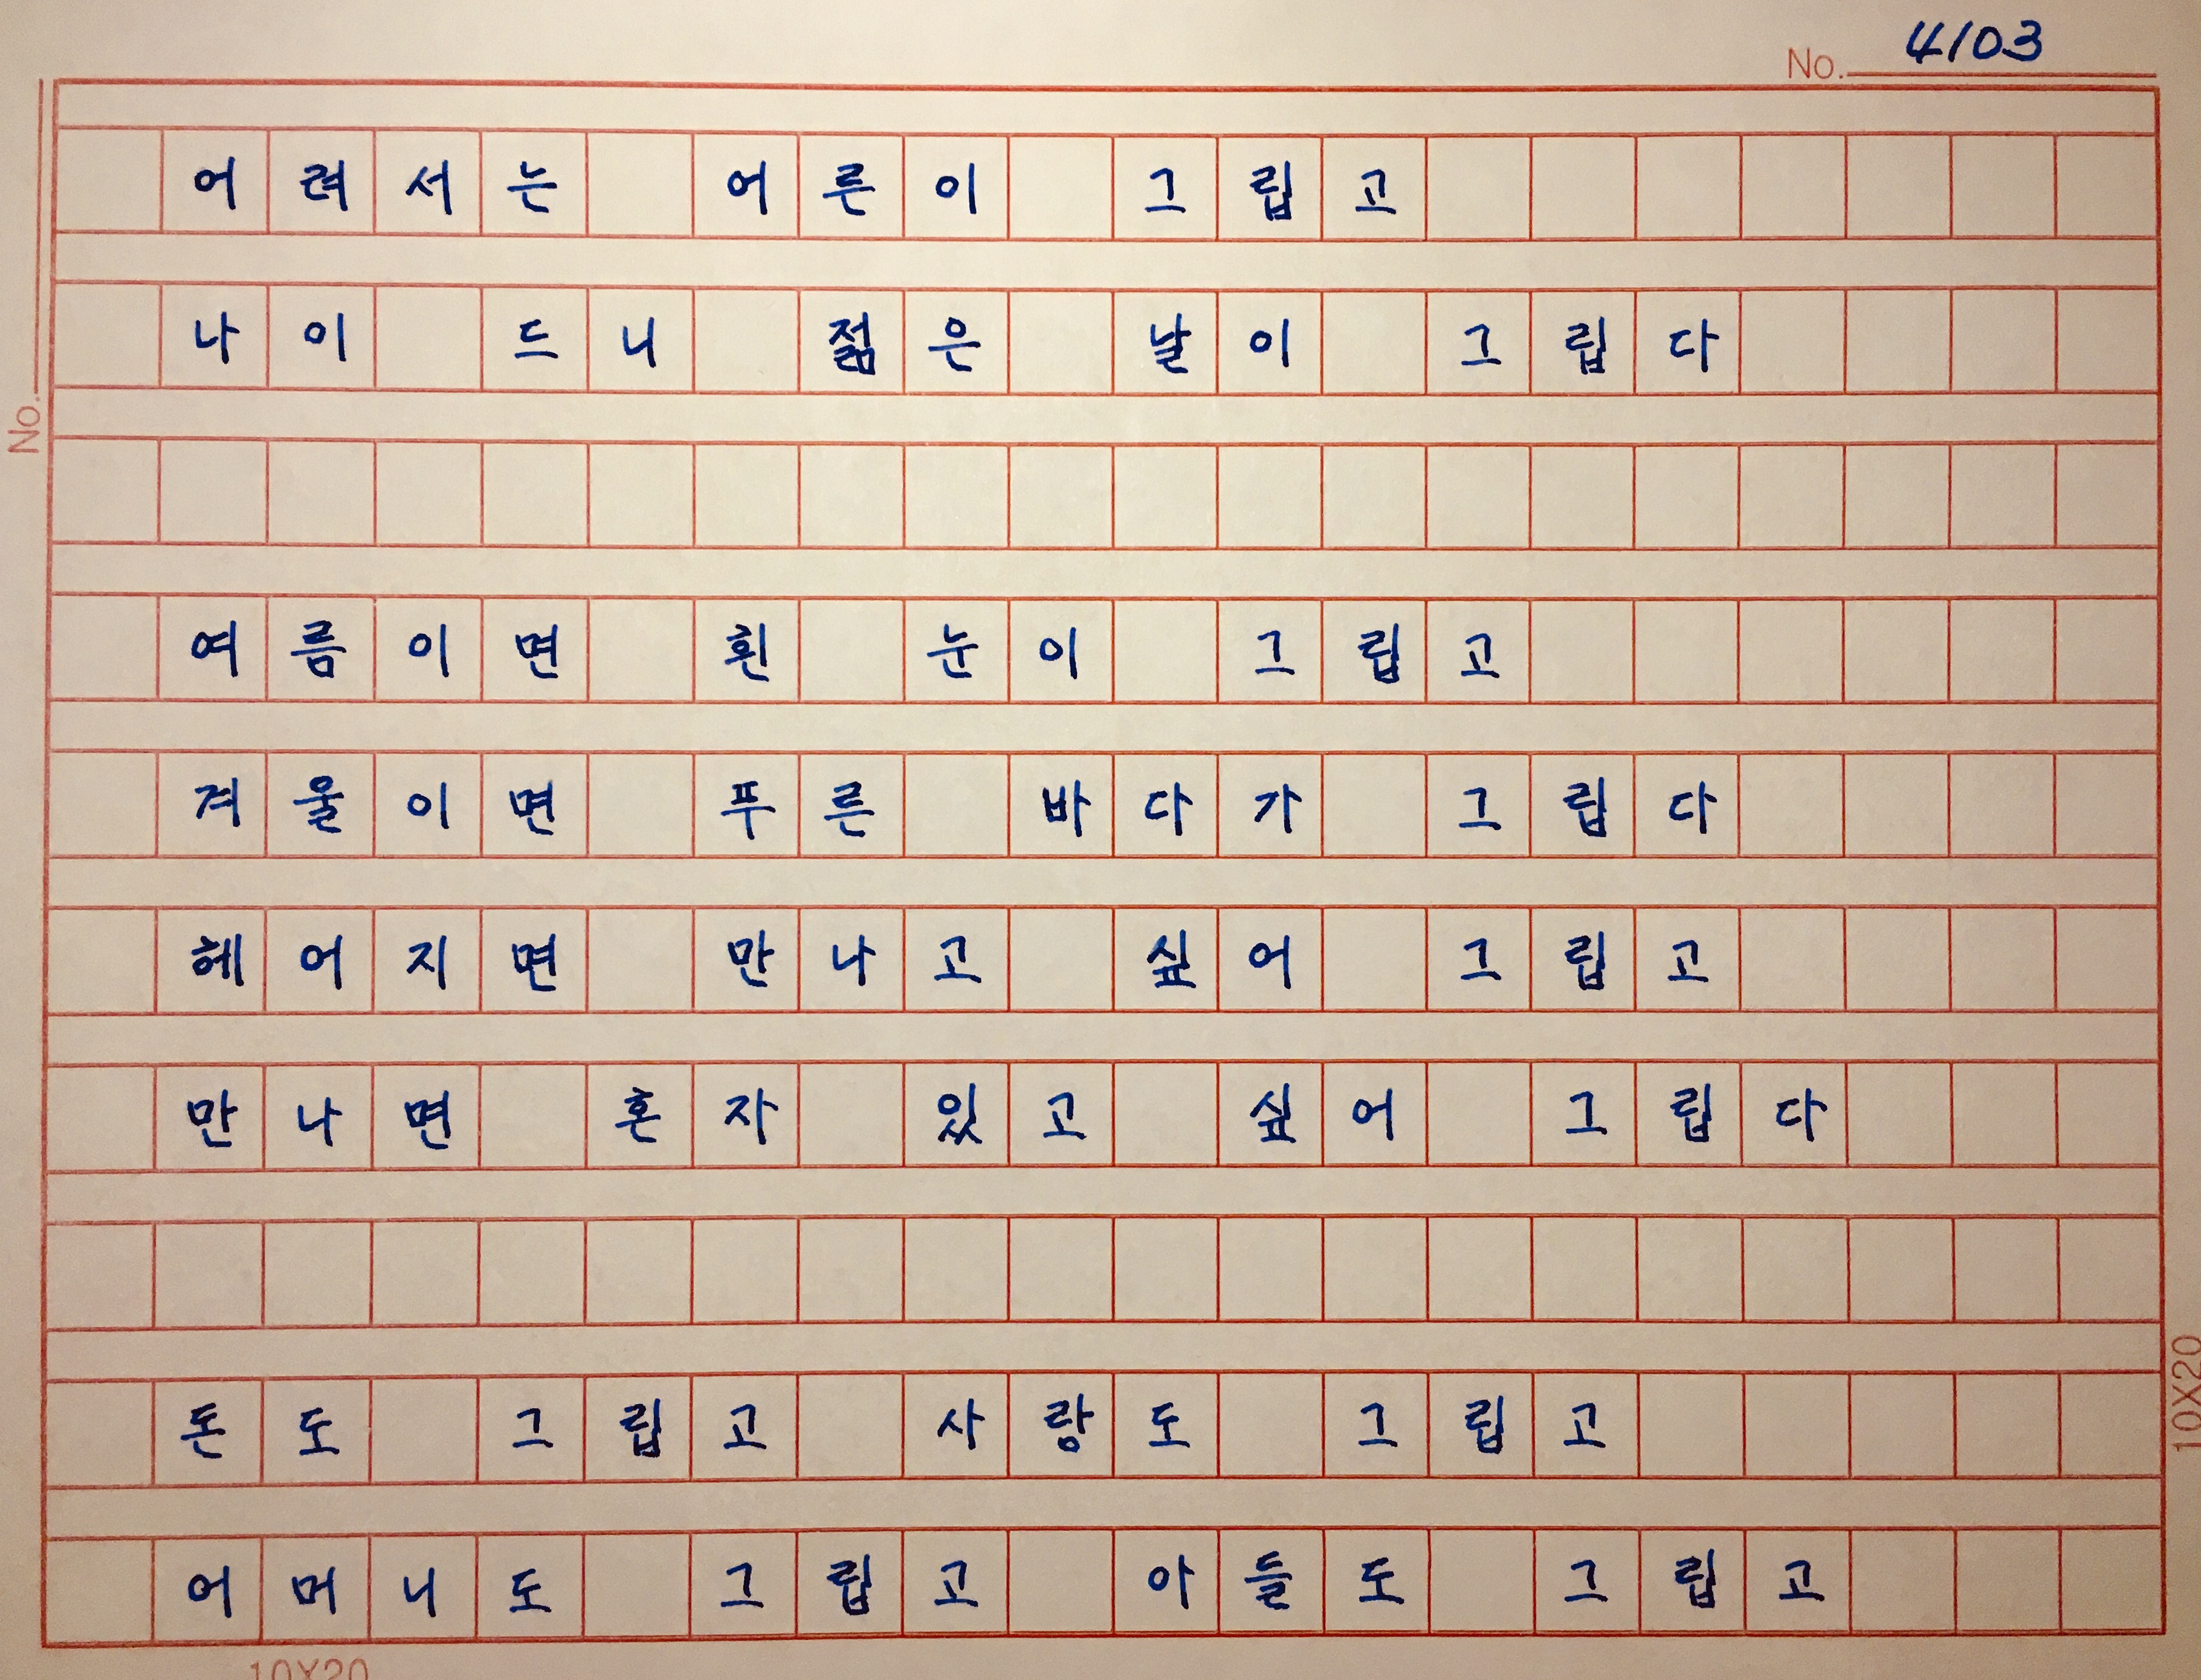 No. 4103
어려서는 어른이 그립고
나이 드니 젊은 날이 그립다
여름이면 흰 눈이 그립고
겨울이면 푸른 바다가 그립다
헤어지면 만나고 싶어 그립고
만나면 혼자 있고 싶어 그립다
돈도 그립고 사랑도 그립고
어머니도 그립고 아들도 그립고
No.
10X20
10X20